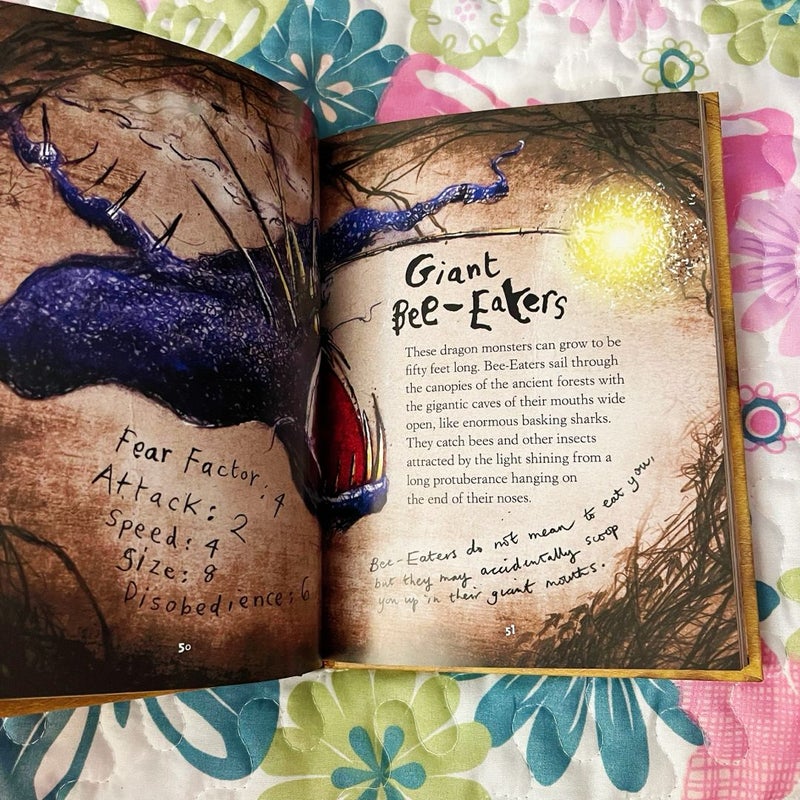 Fear Factor: 4
Attack: 2
Speed: 4
Size: 8
Disobedience: 6
50
Giant
Bee-Eaters
These dragon monsters can grow to be
fifty feet long. Bee-Eaters sail through
the canopies of the ancient forests with
the gigantic caves of their mouths wide
open, like enormous basking sharks.
They catch bees and other insects
attracted by the light shining from a
long protuberance hanging on
the end of their noses.
Bee-Eaters do not mean to eat you,
but they may accidentally scoop
you up in their giant mouths.
51